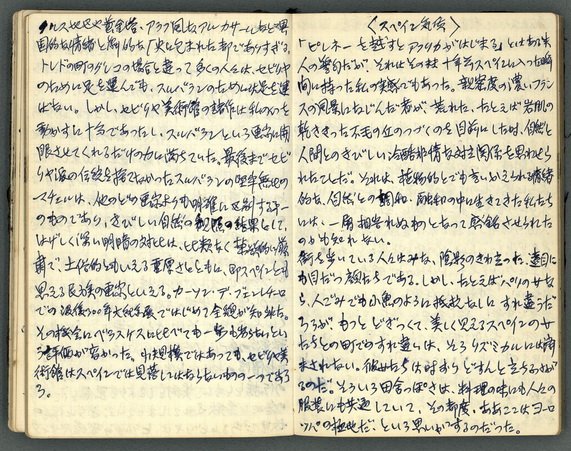 〈スペイン気質〉
「ピレネーを越すとアフリカがはじまる」とはある
人の警句だが、それはその
間に持った私の実感でもあった。親密度の濃いフラン
スの風景になじんだ者が、荒れた、たとえば岩肌の
乾ききった不毛の丘のつづくのを目前にした時、自然と
人間とのきびしい冷酷非情な対立関係を思わせら
れたことだ。それは、植物的とでも言いかえられる情緒
的な、自然との調和、融和の中に生きてきた私たち
には、一層相容れぬものとなって感銘させられた
のかも知れない。
街を歩いている人はみな、陰影のきわ立った、遠目に
も目だつ顔たちである。しかし、たとえばパリの女な
ら、人ごみでも小魚のように抵抗なしに すれ違うだ
ろうが、もっと どぎつくて、美しく見えるスペインの女
たちとの町でのすれ違いは、そうリズミカルには
まされない。彼女たちは時折 どすんと立ち
のだ。そういう田舎っぽさは、料理の味にも人々の
服装にも共通していて、その都度、ああここはヨーロ
ッパの極地だ、という思いがするのだった。
クルス地区や黄金塔、アラブ風なアルカサールなど異
国的な情緒と
トレドの町のグレコの場合と違って多くの人々は、セビリヤ
のために足を運んでも、スルバランのためには足を運
ばない。しかし、セビリヤ美術館の諸作は私の心を
動かすに十分であったし、スルバランという画家に開
眼させてくれるだけの力に満ちていた。最後までセビ
リヤ派の伝統を捨てなかったスルバランの堅牢無比の
マチエルは、他のどの画家よりも明確に区別する第一
のものであり、きびしい自然の観照の結果として、
はげしく深い明暗の対比は、比類なく
で、土俗的ともいえる重厚さとともに、即スペインとも
思える民族の画家といえる。カーソン・デ・ブェン・レチーロ
での没後300年大記念展ではじめて全貌が知られた。
その機会にベラスケスにくらべても一歩も劣らないとい
う評価が高かった。小規模ではあっても、セビリヤ美
術館はスペインでは見落してはならないものの一つであろ
う。